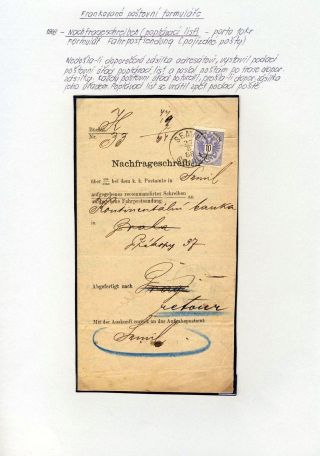 Frankované poštovní formuláře
Nachfrageschreiben (poptávací list) - porto 10kr
Formulář Fahrpostsendung (pojízdná pošta)
Nedošla-li doporučená zásilka adresátovi, vystavil podací
poštovní úřad poptávací list a poslal poštám po trase dopor.
zásilky. Každý poštovní úřad potvrdil,
jeho úřadem. Poptávací list se vrátil zpět podací poště
K 9
Nr. 33
SEMIL
10
Nachfrageschreiben
über bei dem k. k. Postamte in Semil
aufgegebenes recommandirtes Schreiben an
Fahrpostsendung
Kontinentální banka
Praha
Příkopy 37
Abgefertigt nach Prag
retour
Mit der Auskunft zurück an das Aufgabepostamt
Semil